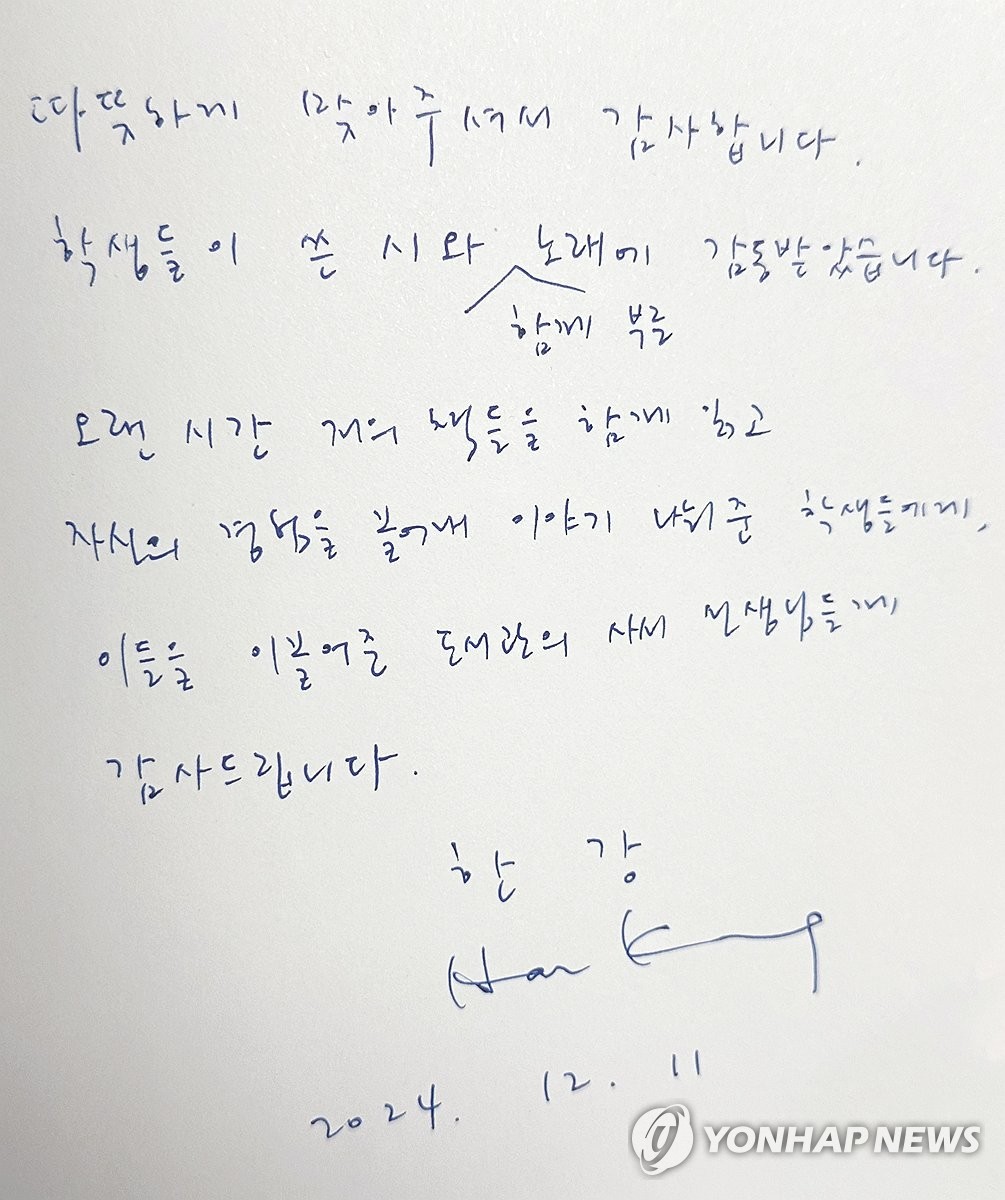 따뜻하게 맞아주셔서 감사합니다.
학생들이 쓴 시와 노래에 감동받았습니다.
함께 부른
오랜 시간 저의 책들을 함께 읽고
자신의 경험을 끌어내 이야기 나눠준 학생들에게,
이들을 이끌어준 도서관의 사서 선생님들께
감사드립니다.
한 강
Han Kang
2024. 12. 11
YONHAP NEWS